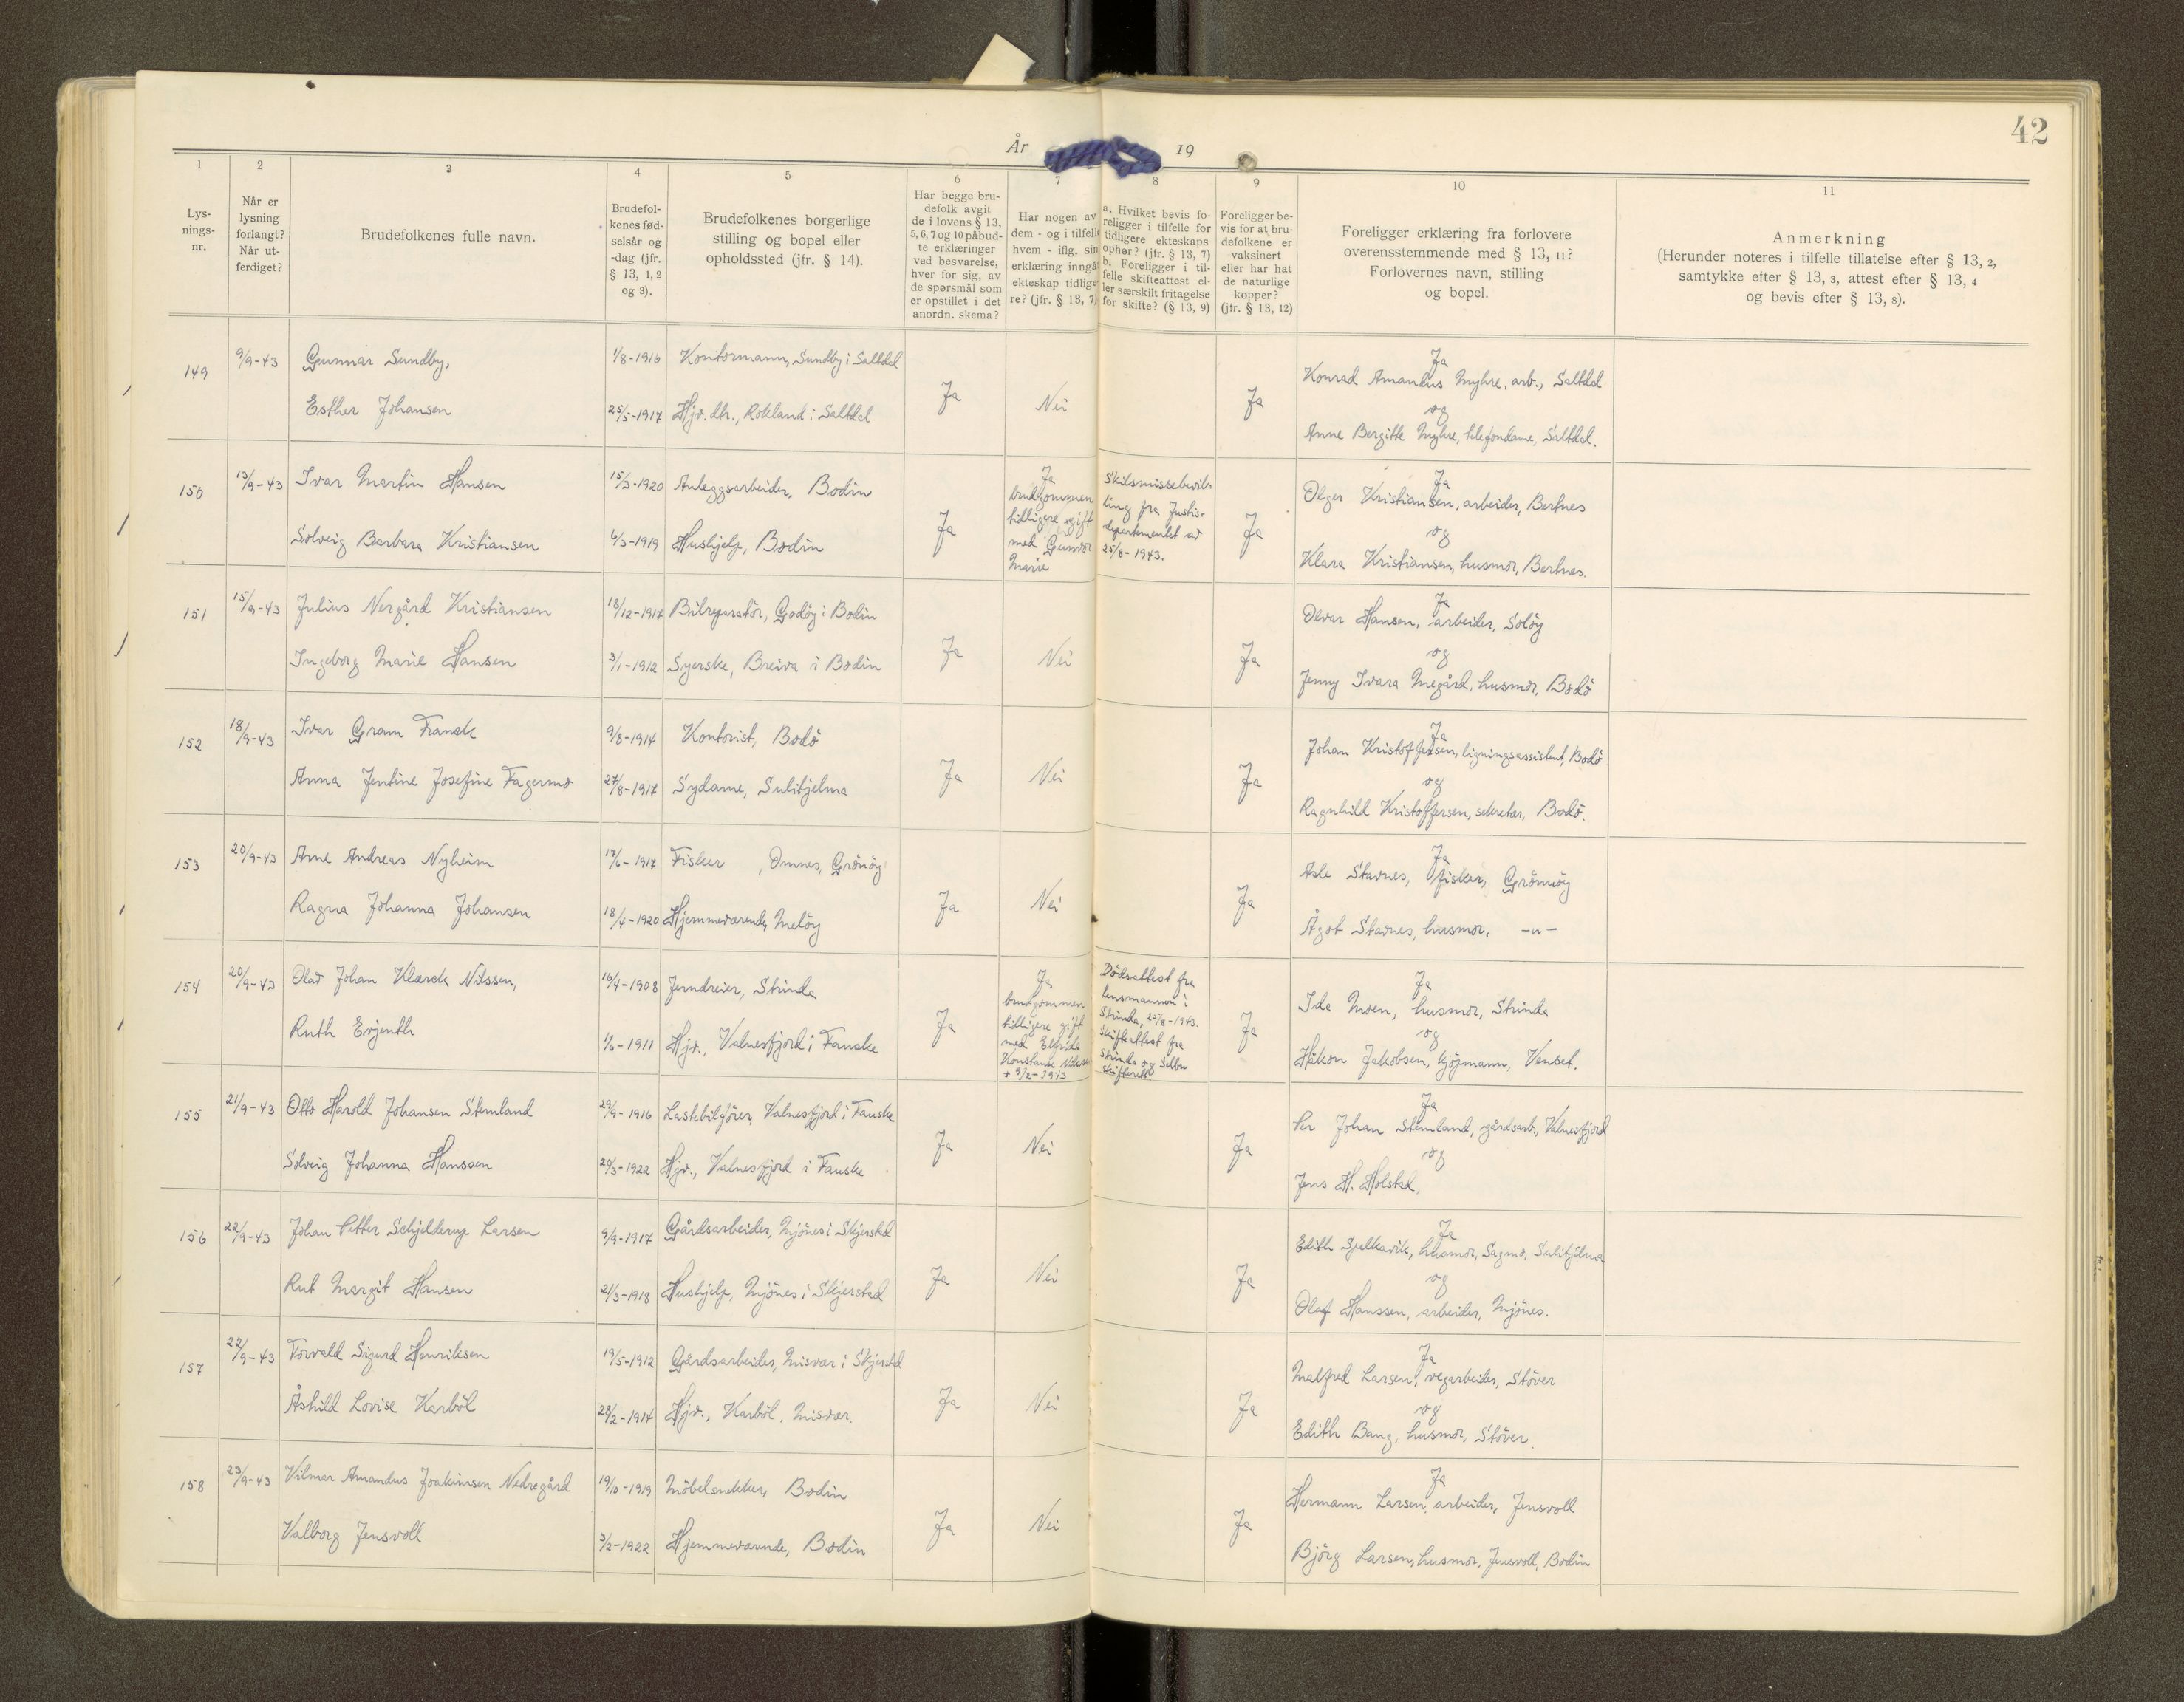 42
År 19
1 2 3 4 5 6 7 8 9 10 11
Lys-
nings-
nr.
Når er
lysning
forlangt?
Når ut-
ferdiget?
Brudefolkenes fulle navn.
Brudefol-
kenes fød-
selsår og
-dag (jfr.
§ 13, 1, 2
og 3).
Brudefolkenes borgerlige
stilling og bopel eller
opholdssted (jfr. § 14).
Har begge bru-
defolk avgit
de i lovens § 13,
5, 6, 7 og 10 påbud-
te erklæringer
ved besvarelse,
hver for sig, av
de spørsmål som
er opstillet i det
anordn. skema?
Har nogen av
dem - og i tilfelle
hvem - iflg. sin
erklæring inngåt
ekteskap tidlige-
re? (jfr. § 13, 7)
a. Hvilket bevis fo-
religger i tilfelle for
tidligere ekteskaps
ophør? (jfr. § 13, 7)
b. Foreligger i til-
felle skifteattest el-
ler særskilt fritagelse
for skifte? (§ 13, 9)
Foreligger be-
vis for at bru-
defolkene er
vaksinert
eller har hat
de naturlige
kopper?
(jfr. § 13, 12)
Foreligger erklæring fra forlovere
overensstemmende med § 13, 11?
Forlovernes navn, stilling
og bopel.
Anmerkning
(Herunder noteres i tilfelle tillatelse efter § 13, 2,
samtykke efter § 13, 3, attest efter § 13, 4
og bevis efter § 13, 8).
149 9/9-43 Gunnar Sundby, 1/8-1916 Kontormann, Sundby i Saltdal
Esther Johansen 25/5-1917 Hjv. dtr., Rokland i Saltdal
Ja Nei Ja
Ja
Konrad Amandus Myhre, arb., Saltdal
og
Anne Bergitte Myhre, telefondame, Saltdal.
150 13/9-43 Ivar Martin Hansen 15/3-1920 Anleggsarbeider, Bodin
Solveig Barbara Kristiansen 6/3-1919 Hushjelp, Bodin
Ja
Ja
brudgommen
tidligere gift
med Gunvor
Marie
Skilsmissebevil-
ling fra Justis-
departementet av
25/8-1943.
Ja
Ja
Olger Kristiansen, arbeider, Bertnes
og
Klara Kristiansen, husmor, Bertnes.
151 15/9-43 Julius Nergård Kristiansen 18/12-1917 Bilreparatör, Godöy i Bodin
Ingeborg Marie Hansen 3/1-1912 Syerske, Breiva i Bodin
Ja Nei Ja
Ja
Olvar Hansen, arbeider, Solöy
og
Jenny Ivara Negård, husmor, Bodö
152 18/9-43 Ivar Gram Franck 9/8-1914 Kontorist, Bodö
Anna Jentine Josefine Fagermo 27/8-1917 Sydame, Sulitjelma
Ja Nei Ja
Ja
Johan Kristoffersen, ligningsassistent, Bodö
og
Ragnhild Kristoffersen, sekretær, Bodö.
153 20/9-43 Arne Andreas Nyheim 17/6-1917 Fisker, Omnes, Grönöy
Ragna Johanna Johansen 18/4-1920 Hjemmeværende, Melöy
Ja Nei Ja
Ja
Asle Stavnes, fisker, Grönnöy
Ågot Stavnes, husmor, -"-
154 20/9-43 Olav Johan Klærck Nilssen, 16/4-1908 Jerndreier, Strinda
Ruth Evjenth 1/6-1911 Hjv., Valnesfjord i Fauske
Ja
Ja
brudgommen
tidligere gift
med
Konstanse Nilssen
+ 9/2-1943
Dödsattest fra
lensmannen i
Strinda, 27/8-1943.
Skifteattest fra
Strinda og Selbu
skifterett.
Ja
Ja
Ida Moen, husmor, Strinda
og
Håkon Jakobsen, kjöpmann, Venset.
155 21/9-43 Otto Harold Johansen Stemland 29/9-1916 Lastebilförer, Valnesfjord i Fauske
Solveig Johanna Hanssen 29/3-1922 Hjv., Valnesfjord i Fauske
Ja Nei Ja
Ja
Per Johan Stemland, gårdsarb., Valnesfjord
og
Jens H. Holstad,
156 22/9-43 Johan Petter Schjelderup Larsen 9/9-1917 Gårdsarbeider, Mjönes i Skjerstad
Rut Margit Hansen 21/3-1918 Hushjelp, Mjönes i Skjerstad
Ja Nei Ja
Ja
Edith Spelkavik, husmor, Sagmo, Sulitjelma
og
Olaf Hanssen, arbeider, Mjönes.
157 22/9-43 Torvald Sigurd Henriksen 19/5-1912 Gårdsarbeider, Misvær i Skjerstad
Åshild Lovise Karböl 28/2-1914 Hjv., Karböl, Misvær.
Ja Nei Ja
Ja
Malfred Larsen, vegarbeider, Stöver
og
Edith Bang, husmor, Stöver.
158 23/9-43 Vilmar Amandus Joakimsen Nedregård 19/10-1919 Möbelsnekker, Bodin
Valborg Jensvoll 3/2-1922 Hjemmeværende, Bodin
Ja Nei Ja
Ja
Hermann Larsen, arbeider, Jensvoll
Björg Larsen, husmor, Jensvoll, Bodin